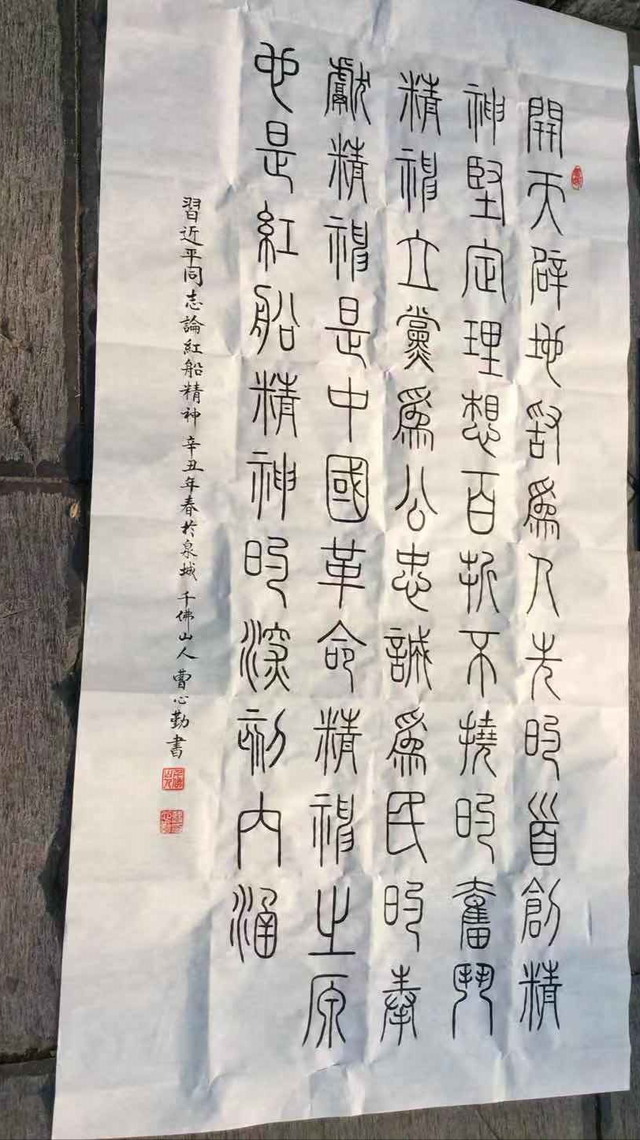 開天辟地敢爲人先的首創精
神堅定理想百折不撓的奮鬥
精神立黨爲公忠誠爲民的奉
獻精神是中國革命精神之原
也是紅船精神的深刻内涵
習近平同志論紅船精神辛丑年春於泉城千佛山人曹心勤書